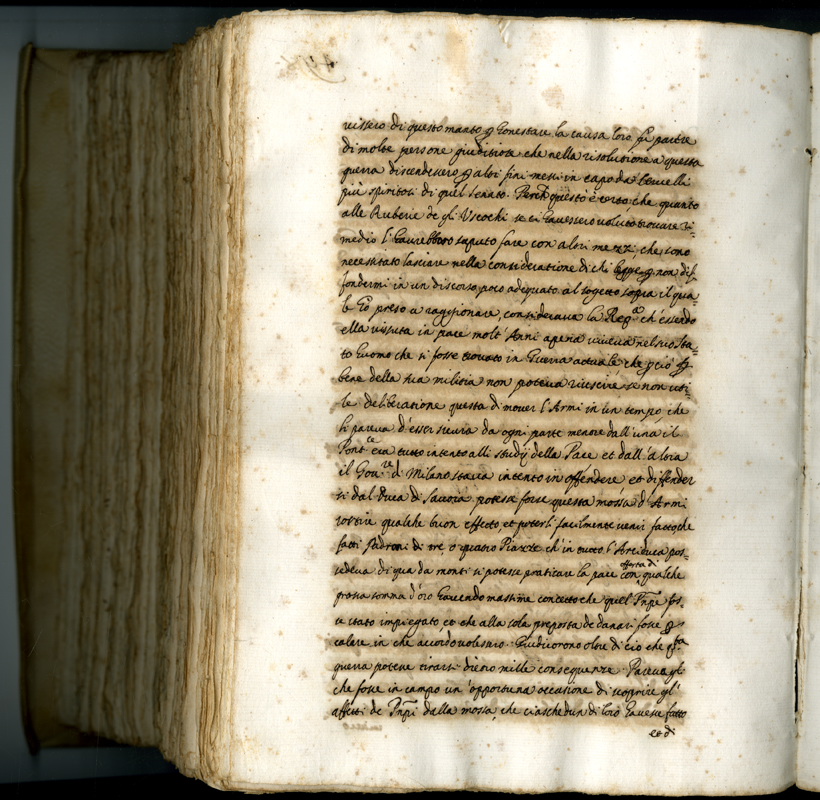 vissero di questo manto p honestare la causa loro, fù parere
di molte persone giuditiose che nella risolutione a questa
guerra discendessero p altri fini messi in capo da cervelli
più spiritosi di quel senato. Perche questo è certo che quanto
alle Ruberie de gli Uscochi se ci havessero voluto trovare ri=
medio l'haurebbero saputo fare con altri mezzi, che sono
necessitato lasciare nella consideratione di chi legge p non dif=
fondermi in un discorso poco adequato al sogetto sopra il qua
le hò preso a raggionare, considerava la Rep.ca ch'essendo
ella vissuta in pace molt'Anni apena viveva nel suo Sta=
to huomo che si fosse trovato in Guerra actuale che p ciò
bene della sua militia non poteva riuscire se non uti=
le deliberatione questa di mover l'Armi in un tempo, che
li pareva d'esser sicura da ogni parte mentre dall'una il
Pont.ce era tutto intento alli studij della Pace et dall'altra
il Gov.re di Milano stava intento in offendere et diffender
si dal Duca di Savoia potesse forse questa mossa d'Armi
sortire qualche buon effetto, et poterli facilmente venir fatto che
fatti Padroni di tre, o quatro Piazze ch'in tutto l'Arciduca pos=
sedeva di qua da monti si potesse praticare la pace con offerta di qualche
grossa somma d'oro havendo massime concetto che quel Prñpe fos=
se stato impiegato et che alla sola proposta de danari fosse p
calare in che accordo volessero. Giudicorono oltre di ciò che q.ta
guerra potesse tirarsi dietro mille consequenze. Pareva gli
che fosse in campo un'opportuna occasione di scoprire gl'
affetti de Prñpi dalla mossa, che ciaschedun di loro havesse fatto
et di